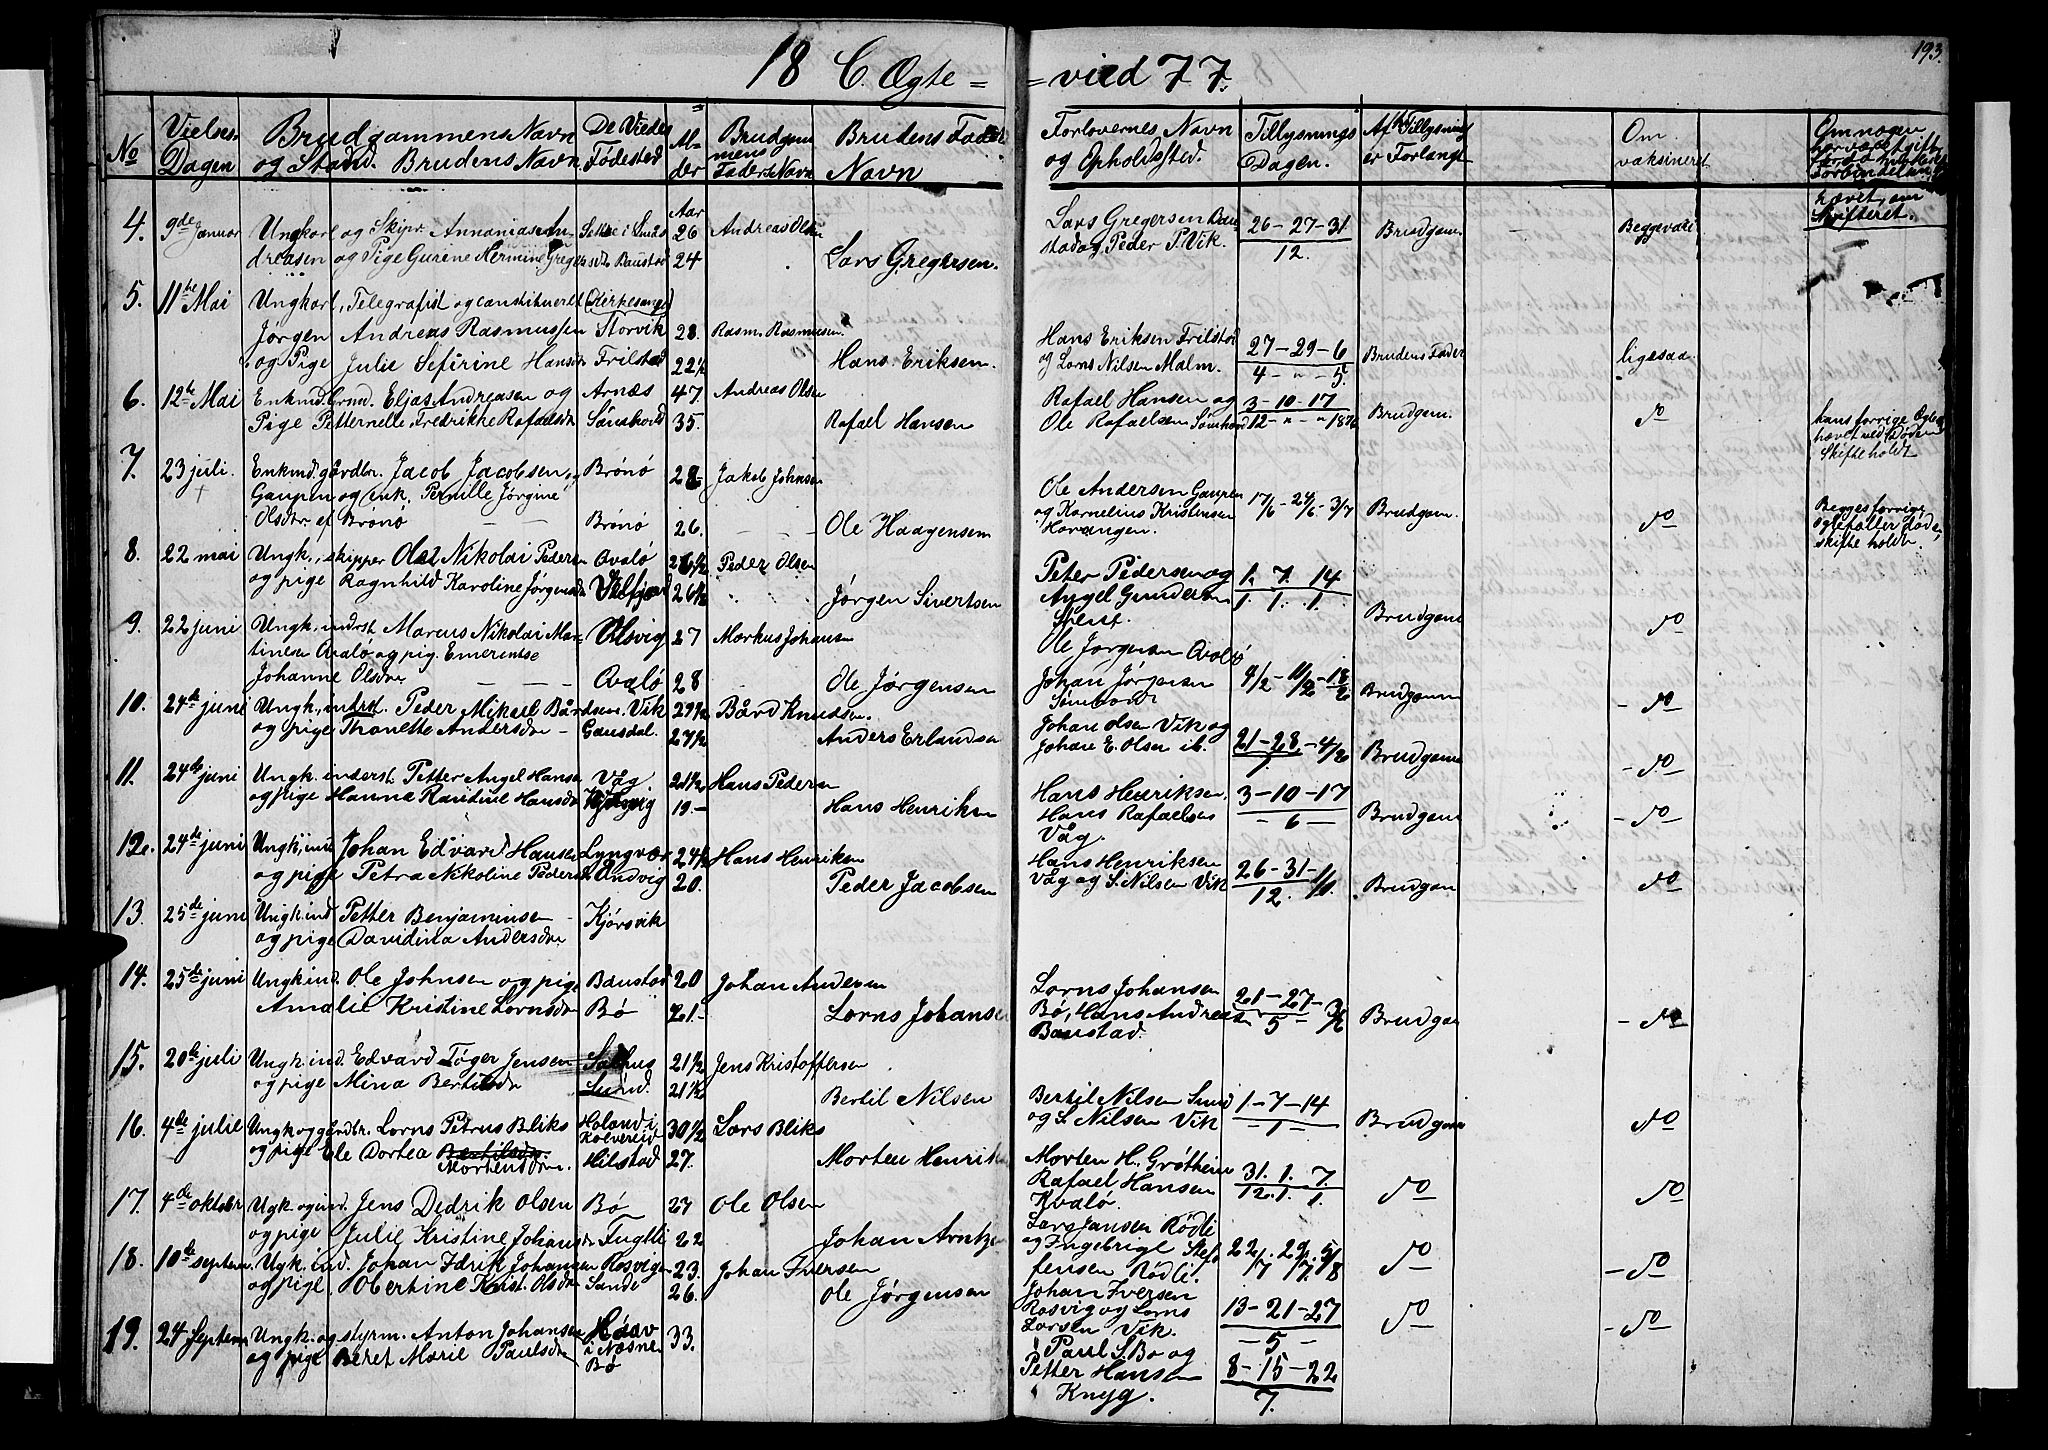 193.
18 C. Ægte = = vied 77.
No
Vielses Dagen
Brudgommens Navn og Stand. Brudens Navn
De Viedes Fødested
Alder
Brudgommens Faders Navn
Brudens Fader Navn
Forlovernes Navn og Opholdssted.
Tillysnings Dagen.
Af Tillysning er Forlangt
Om vaksineret
Om nogen har været gift
hævet, om Skifteret.
4. 9de Januar Ungkarl og Skipr Annanias An- Aar 26 Andreas Olsen Lars Gregersen 26-27-31 Brudgom. Begge vaks
dreasen og Pige Gurene Hermine Gregersdtr Baustad 24 Lars Gregersen. Peder P. Vik. 12.
5. 11te Mai Ungkarl, Telegrafist og constitueret
Jørgen Andreas Rasmussen Storvik 28. Rasm. Rasmussen. Hans Eriksen Frilstad 27-29-6 Brudens Fader ligesaa.
og Pige Julie Sefirine Hansdr Frilstad 22½ Hans Eriksen. og Lorns Nilsen Malm. 4-"-5.
6. 12te Mai Enkmd. Grmd. Eljas Andreasen og Arnæs 47. Andreas Olsen Rafael Hansen og 3-10-17 Brudgom. do hans forrige Ægtesk
Pige Petternelle Fredrikke Rafaelsdr Sømhovd 35. Rafael Hansen Ole Rafaelsen Sømhovd 12-"-"1876 hævet ved Døden Skifte holdt
7. 23 juli. Enkmd. gårdbr. Jacob Jacobsen, Brønø 28 Jakob Johnsen Ole Andersen Gaupen 17/6-24/6-3/7 Brudgom. do Begges forrige
Gaupen og enk. Pernille Jørgine og Kornelius Kristensen ægtefæller døde,
Olsdtr. af Brønø — — Brønø 26. Ole Haagensen Horvangen. skifte holdt.
8. 22 mai Ungk., skipper Ole Nikolai Pedersen Qvalø 26½ Peder Olsen Peter Pedersen og 1. 7. 14 Brudgom do
og pige Ragnhild Karoline Jørgensdr Velfjord 26½ Jørgen Sivertsen Angel Gundersen 1. 1. 1.
9. 22 juni Ungk., inderst Marcus Nikolai Mar- Olsvig 27 Markus Johansen Ole Jørgensen Qvalø
tinsen Qvalø og pig. Emerentse
Johanne Olsdtr — — Qvalø 28 Ole Jørgensen Johan Jørgensen 4/2-11/2-18/2 Brudgom - do
10. 24de juni Ungk, indrst. Peder Mikael Bårdsen. Vik 29½ Bård Knudsen. Johan Olsen Vik og 21-28-4/2 Brudgom - do -
og pige Thonette Andersdr - Gausdal. 27½ Anders Erlandsen Johan E. Olsen ib. 1
11. 24de juni Ungk. inderst. Petter Angel Hansen Våg 21½ Hans Pedersen Hans Henriksen. 3-10-17 Brudgom - do -
og pige Hanne Rantine Hansdr Kjørsvig 19.- Hans Henriksen Hans Rafaelsen Våg. - 6 -
12. 24de juni Ungk, ind Johan Edvard Hansen Lyngvær 24½ Hans Henriksen Hans Henriksen 26-31-1/1. Brudgom do
og pige Petra Nikoline Pedersdr Andvig 20. Peder Jacobsen Våg og S. Nilsen Vik 12.
13. 25de juni Ungk ind Petter Benjaminsen Kjørsvik
og pige Davidina Andersdr
14. 25de juni Ungk ind. Ole Johnsen og pige Baustad 20 Johan Andersen Lorns Johansen 21-27-3/6 Brudgom - do
Amalie Kristine Lornsdr Bø 21.- Lorns Johansen Bø, Hans Andreasen Baustad. 5
15. 20de juli Ungk ind. Edvard Tøger Jensen Salhus 21½ Jens Kristoffersen
og pige Mina Bertilsdr Sund. 21½ Bertil Nilsen Bertil Nilsen Sund 1-7-14 Brudgom do
16. 4de julie Ungk og gårdbr. Lorns Petrus Bliks Holand i Kolvereid 30½ Lars Bliks og L. Nilsen Vik - 1 -
og pige Ele Dortea Bertilsdr. Mortensdtr. Hilstad 27. Morten Henriksen Morten H. Grøttheim 31. 1. 7 do do
Rafael Hansen Kvalø. 12. 1. 1.
17. 4de oktober Ugk og ind. Jens Dedrik Olsen Bø 27 Ole Olsen Lars Jansen Rødli
og pige Julie Kristine Johansdr Fugtli 22 Johan Arntzen og Engebrigt Stef- 22/7. 29/7. 5/8 do - do -
fensen Rødli.
18. 10de septem Ugk. ind. Johan Idrik Johansen Rosvigen 23. Johan Iversen Johan Iversen 13-21-27 do - do
og pige Obertine Krist. Olsdr Sande 26. Ole Jørgensen Rosvig og Lorns Larsen Vik. - 5 -
19. 24 Septem Ungk. og styrm. Anton Johansen i Næsne 33. Paul S. Bø og 8-15-22
og pige Beret Marie Paulsdr Bø Petter Hansen Knyg. 7.